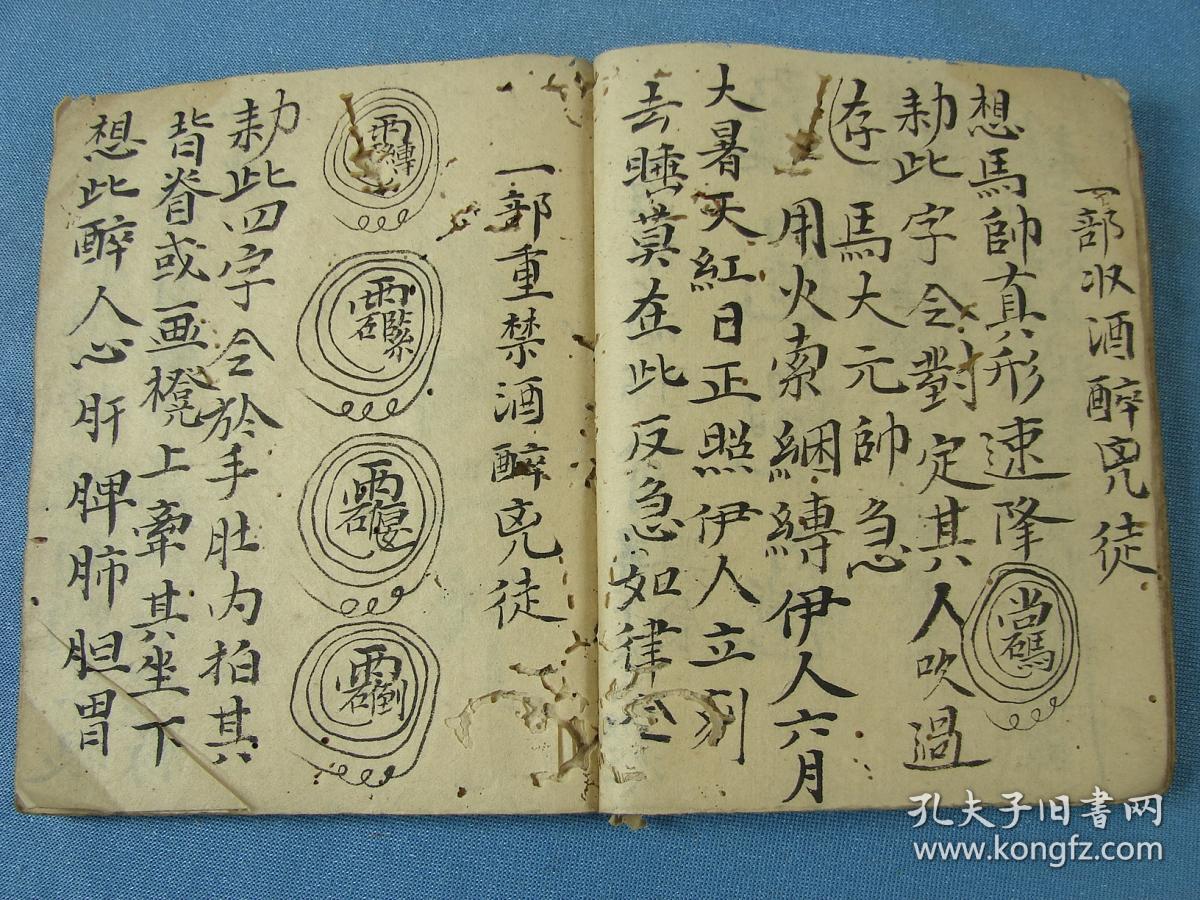 一部收酒醉兇徒
想馬帥真形速降
勅此字令對定其人吹過
存馬大元帥急
用火索綑縛伊人六月
大暑天紅日正照伊人立刻
去睡莫在此反急如律令
一部重禁酒醉兇徒
勅此四字令於手肚内拍其
背脊或画櫈上牽其坐下
想此醉人心肝脾肺胆胃
孔夫子旧书网
www.kongfz.com